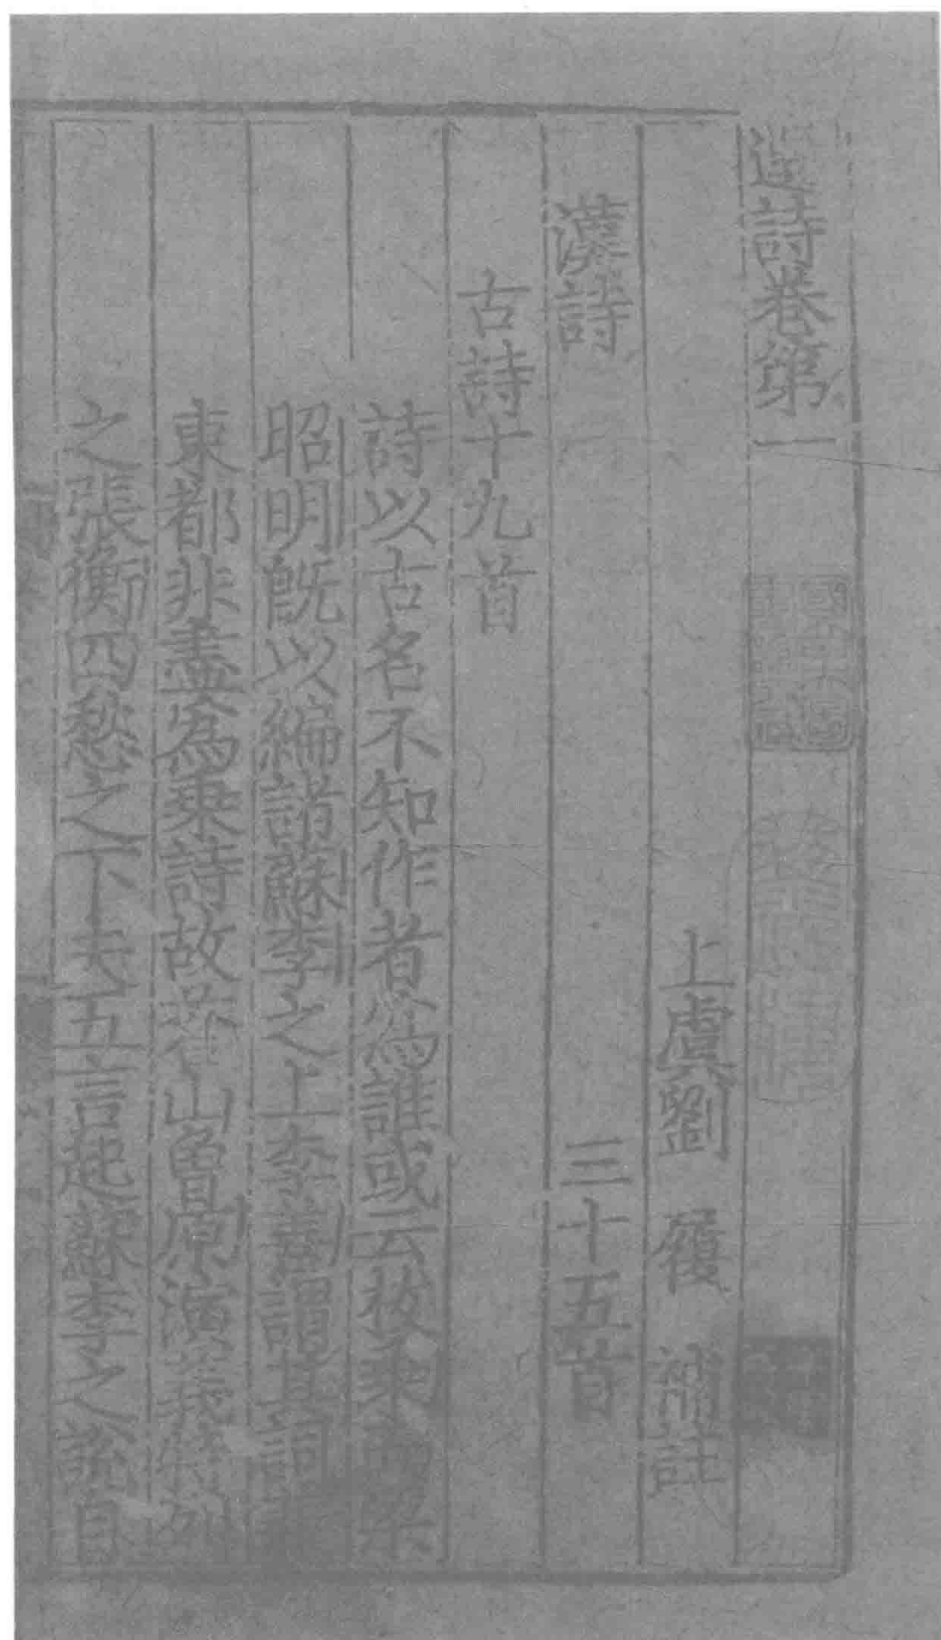 選詩卷第一
上虞劉 履 補註
漢詩 三十五首
古詩十九首
詩以古名不知作者為誰或云枚乘而梁
昭明旣以編諸蘇李之上李善謂其詞兼
東都非盡為乗詩故蒼山曾原演義特列
之張衡四愁之下夫五言起蘇李之說自